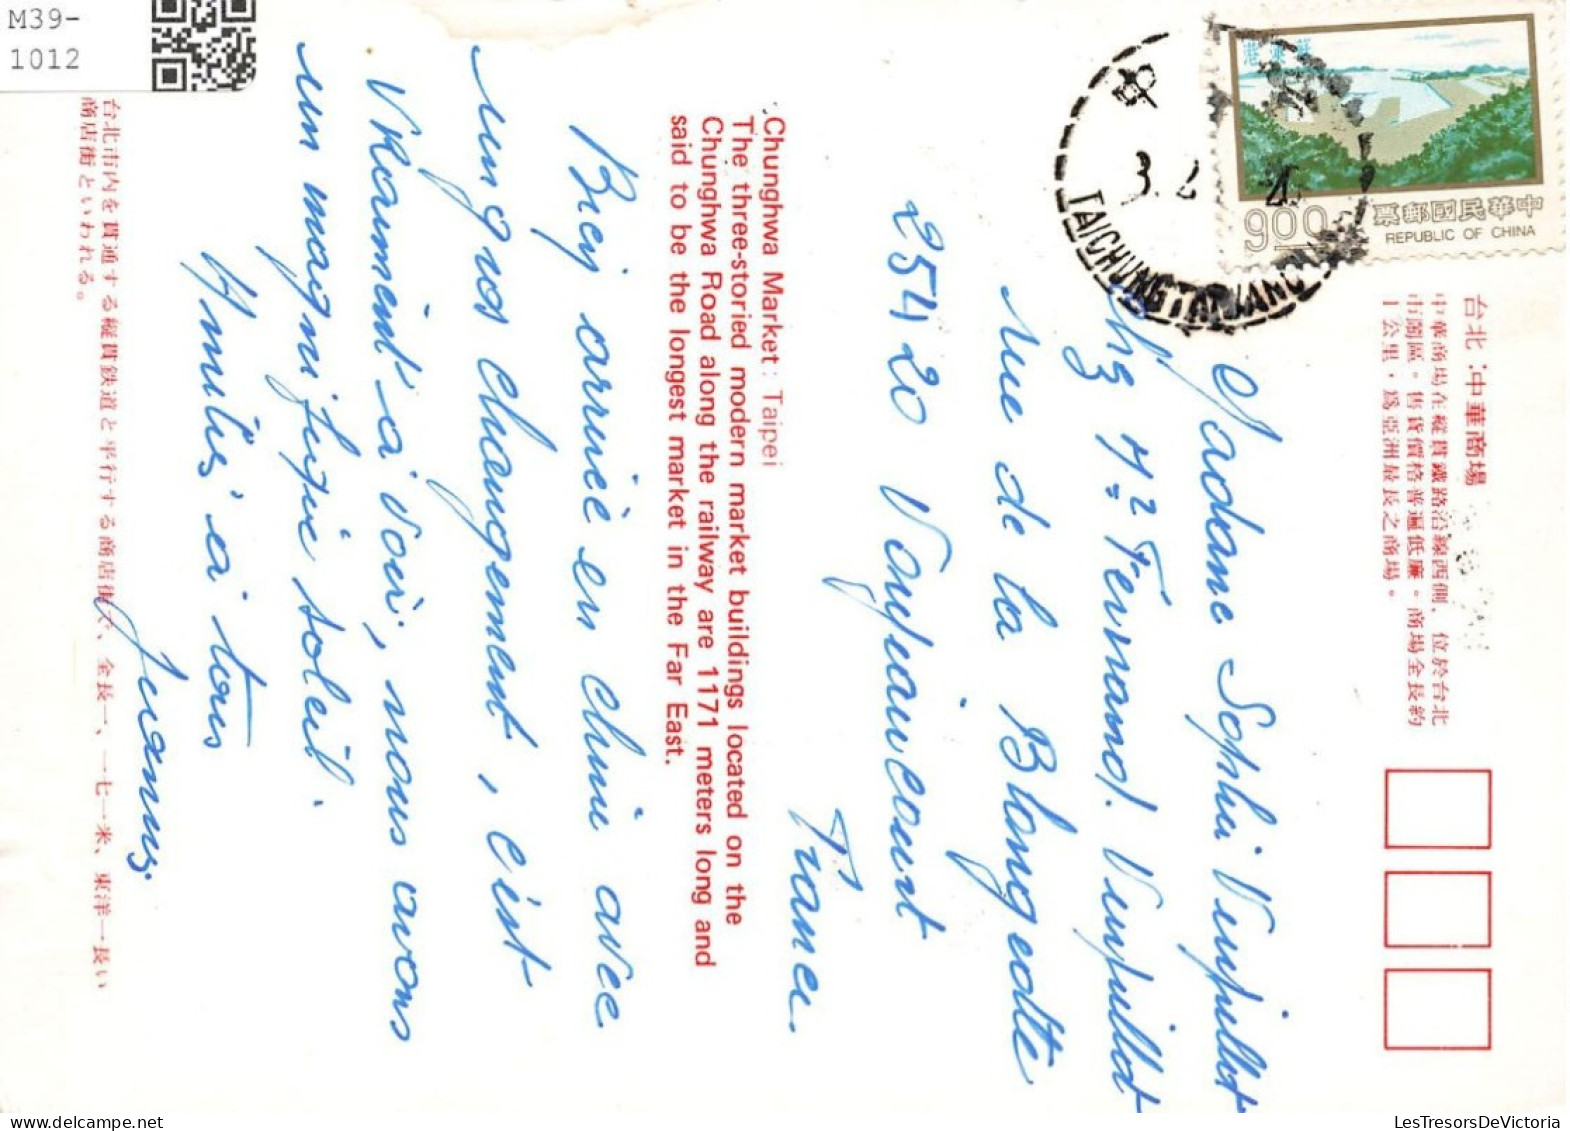 M39-
1012
港澳蘇
9.00
中華民國郵票
REPUBLIC OF CHINA
3. 2
TAICHUNG TAIWAN
台北:中華商場
中華商場在縱貫鐵路沿線西側、位於台北
市鬧區。售貨價格普遍低廉。商場全長約
1公里,爲亞洲最長之商場。
Madame Sophie Vuipillot
chez Mr Fernand. Vuipillot
rue de la Blongeotte
25420 Voujeaucourt
France.
Chunghwa Market: Taipei
The three-storied modern market buildings located on the
Chunghwa Road along the railway are 1171 meters long and
said to be the longest market in the Far East.
Bien arrivée en chine avec
un gros changement, c'est
Vraiment à voir, nous avons
un magnifique soleil.
Amitiés à tous
台北市内を貫通する縦貫鉄道と平行する商店街で、全長一、一七一米、東洋一長い
商店街といわれる。
LesTresorsDeVictoria